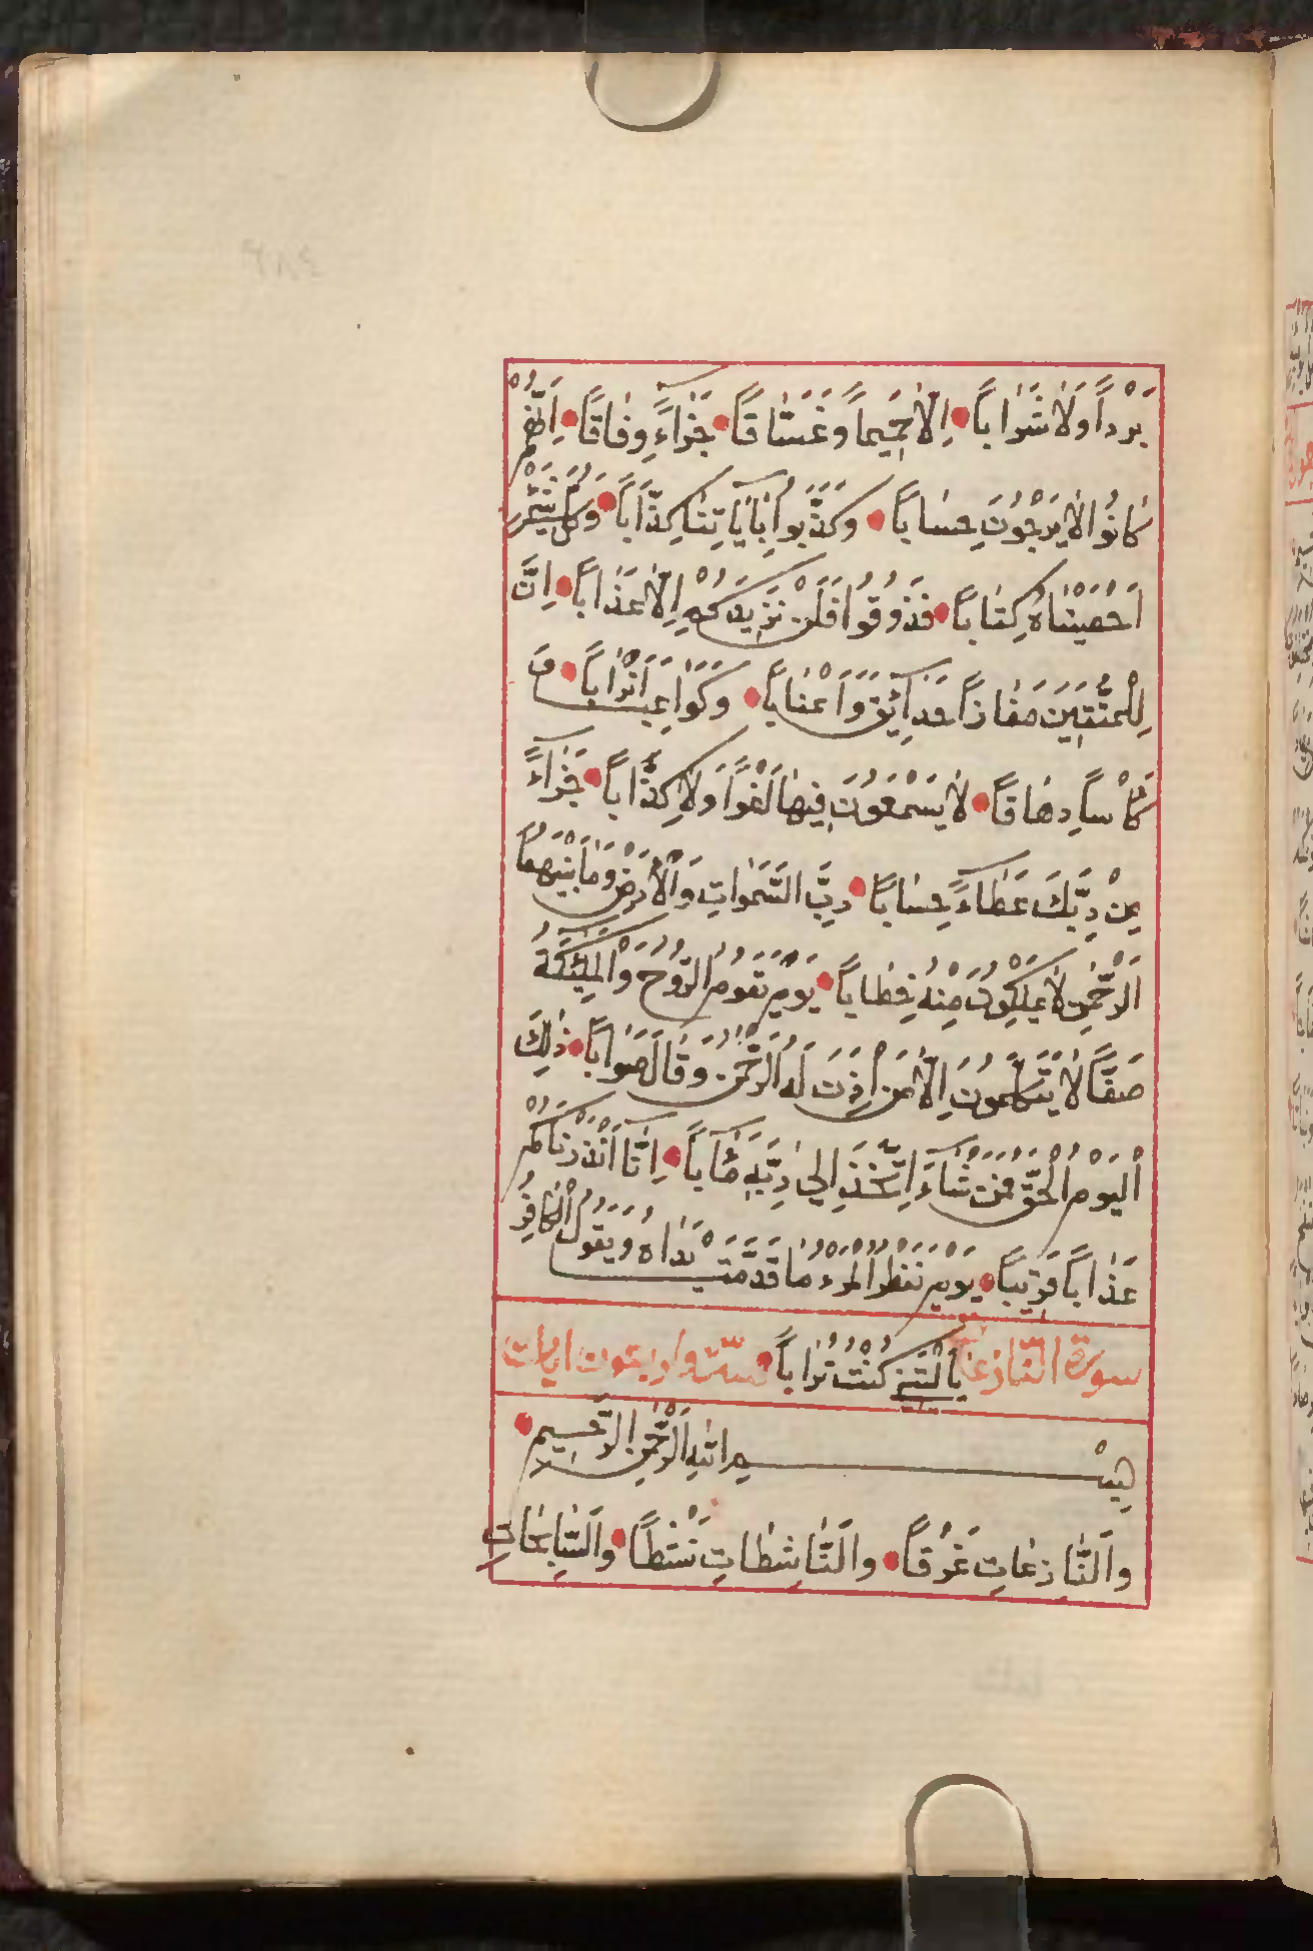 بَرْداً وَلَا شَرَاباً • اِلَّا حَمِيماً وَغَسَّاقاً • جَزَاءً وِفَاقاً • اِنَّهُمْ
كَانُوا لَا يَرْجُونَ حِسَاباً • وَكَذَّبُوا بِاٰيَاتِنَا كِذَّاباً • وَكُلَّ شَيْءٍ
اَحْصَيْنَاهُ كِتَاباً • فَذُوقُوا فَلَنْ نَزِيدَكُمْ اِلَّا عَذَاباً • اِنَّ
لِلْمُتَّقِينَ مَفَازاً حَدَائِقَ وَاَعْنَاباً • وَكَوَاعِبَ اَتْرَاباً • وَ
كَأْساً دِهَاقاً • لَا يَسْمَعُونَ فِيهَا لَغْواً وَلَا كِذَّاباً • جَزَاءً
مِنْ رَبِّكَ عَطَاءً حِسَاباً • رَبِّ السَّمٰوَاتِ وَالْاَرْضِ وَمَا بَيْنَهُمَا
اَلرَّحْمٰنِ لَا يَمْلِكُونَ مِنْهُ خِطَاباً • يَوْمَ يَقُومُ الرُّوحُ وَالْمَلٰئِكَةُ
صَفًّا لَا يَتَكَلَّمُونَ اِلَّا مَنْ اَذِنَ لَهُ الرَّحْمٰنُ وَقَالَ صَوَاباً • ذٰلِكَ
الْيَوْمُ الْحَقُّ فَمَنْ شَاءَ اتَّخَذَ اِلٰى رَبِّهِ مَاٰباً • اِنَّا اَنْذَرْنَاكُمْ
عَذَاباً قَرِيباً • يَوْمَ يَنْظُرُ الْمَرْءُ مَا قَدَّمَتْ يَدَاهُ وَيَقُولُ الْكَافِرُ
سورة النازعات يَا لَيْتَنِي كُنْتُ تُرَاباً • ستة واربعون ايات
بِسْمِ اللّٰهِ الرَّحْمٰنِ الرَّحِيمِ •
وَالنَّازِعَاتِ غَرْقاً • وَالنَّاشِطَاتِ نَشْطاً • وَالسَّابِحَاتِ